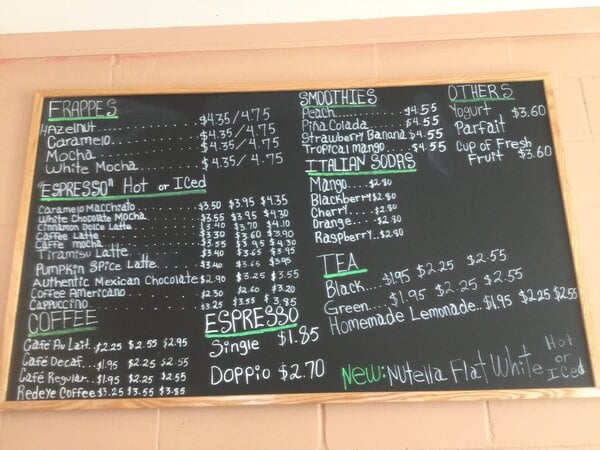 FRAPPES
Hazelnut $4.35/4.75
Caramelo $4.35/4.75
Mocha $4.35/4.75
White Mocha $4.35/4.75
"ESPRESSO" Hot or Iced
Caramelo Macchiato $3.50 $3.95 $4.35
White Chocolate Mocha $3.55 $3.95 $4.30
Cinnamon Dolce Latte $3.40 3.70 $4.10
Caffe Latte $3.30 $3.60 $3.90
Caffe mocha $3.55 $3.95 $4.30
Tiramisu Latte $3.40 $3.65 $3.95
Pumpkin Spice Latte $3.40 $3.65 $3.95
Authentic Mexican Chocolate $2.90 $3.25 $3.55
Coffee Americano $2.30 $2.60 $3.20
Cappuccino $3.25 $3.55 $3.85
COFFEE
Café Au Lait $2.25 $2.55 $2.95
Café Decaf $1.95 $2.25 $2.55
Café Regular $1.95 $2.25 $2.55
Redeye Coffee $3.25 $3.55 $3.85
ESPRESSO
Single $1.85
Doppio $2.70
SMOOTHIES
Peach $4.55
Piña Colada $4.55
Strawberry Banana $4.55
Tropical mango $4.55
ITALIAN SODAS
Mango $2.80
Blackberry $2.80
Cherry $2.80
Orange $2.80
Raspberry $2.80
TEA
Black $1.95 $2.25 $2.55
Green $1.95 $2.25 $2.55
Homemade Lemonade $1.95 $2.25 $2.55
OTHERS
Yogurt
Parfait $3.60
Cup of Fresh
Fruit $3.60
NEW: Nutella Flat White Hot
or
Iced